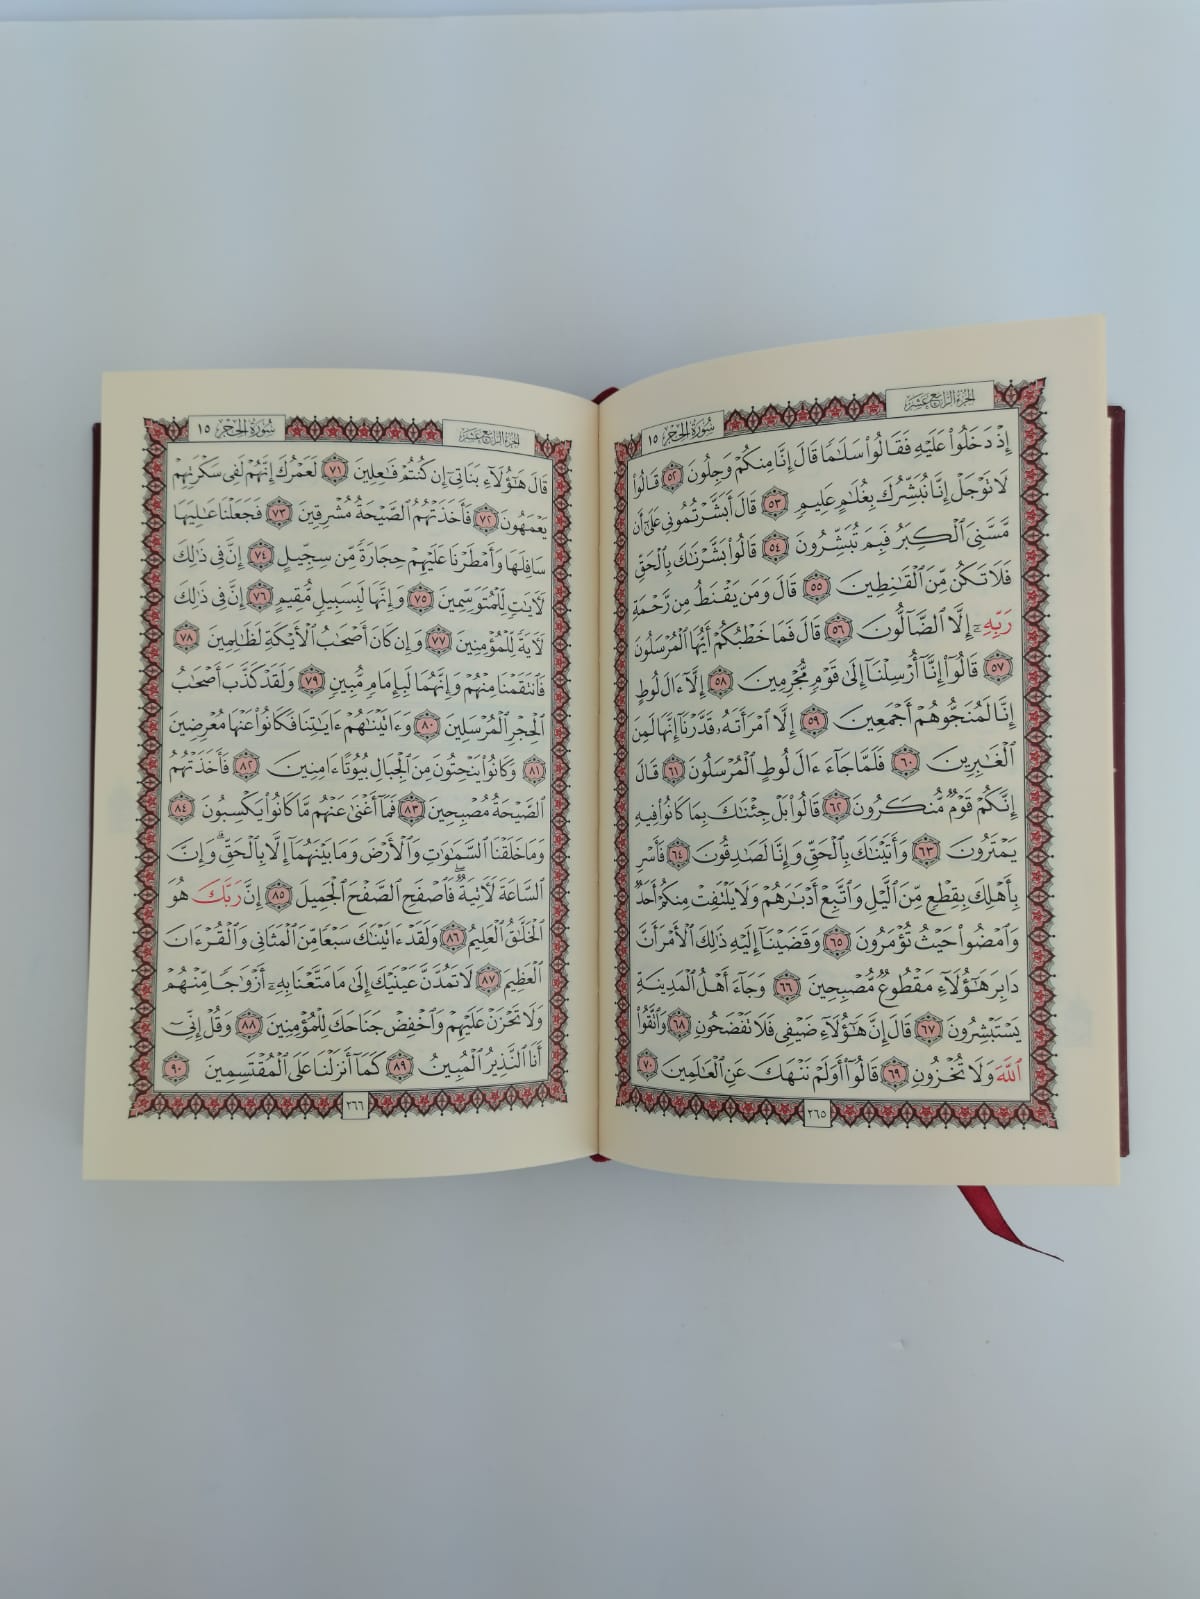 الجزء الرابع عشر
سورة الحجر ١٥
إِذْ دَخَلُوا۟ عَلَيْهِ فَقَالُوا۟ سَلَـٰمًا قَالَ إِنَّا مِنكُمْ وَجِلُونَ ٥٢ قَالُوا۟
لَا تَوْجَلْ إِنَّا نُبَشِّرُكَ بِغُلَـٰمٍ عَلِيمٍ ٥٣ قَالَ أَبَشَّرْتُمُونِى عَلَىٰٓ أَن
مَّسَّنِىَ ٱلْكِبَرُ فَبِمَ تُبَشِّرُونَ ٥٤ قَالُوا۟ بَشَّرْنَـٰكَ بِٱلْحَقِّ
فَلَا تَكُن مِّنَ ٱلْقَـٰنِطِينَ ٥٥ قَالَ وَمَن يَقْنَطُ مِن رَّحْمَةِ
رَبِّهِۦٓ إِلَّا ٱلضَّآلُّونَ ٥٦ قَالَ فَمَا خَطْبُكُمْ أَيُّهَا ٱلْمُرْسَلُونَ
٥٧ قَالُوٓا۟ إِنَّآ أُرْسِلْنَآ إِلَىٰ قَوْمٍ مُّجْرِمِينَ ٥٨ إِلَّآ ءَالَ لُوطٍ
إِنَّا لَمُنَجُّوهُمْ أَجْمَعِينَ ٥٩ إِلَّا ٱمْرَأَتَهُۥ قَدَّرْنَآ إِنَّهَا لَمِنَ
ٱلْغَـٰبِرِينَ ٦٠ فَلَمَّا جَآءَ ءَالَ لُوطٍ ٱلْمُرْسَلُونَ ٦١ قَالَ
إِنَّكُمْ قَوْمٌ مُّنكَرُونَ ٦٢ قَالُوا۟ بَلْ جِئْنَـٰكَ بِمَا كَانُوا۟ فِيهِ
يَمْتَرُونَ ٦٣ وَأَتَيْنَـٰكَ بِٱلْحَقِّ وَإِنَّا لَصَـٰدِقُونَ ٦٤ فَأَسْرِ
بِأَهْلِكَ بِقِطْعٍ مِّنَ ٱلَّيْلِ وَٱتَّبِعْ أَدْبَـٰرَهُمْ وَلَا يَلْتَفِتْ مِنكُمْ أَحَدٌ
وَٱمْضُوا۟ حَيْثُ تُؤْمَرُونَ ٦٥ وَقَضَيْنَآ إِلَيْهِ ذَٰلِكَ ٱلْأَمْرَ أَنَّ
دَابِرَ هَـٰٓؤُلَآءِ مَقْطُوعٌ مُّصْبِحِينَ ٦٦ وَجَآءَ أَهْلُ ٱلْمَدِينَةِ
يَسْتَبْشِرُونَ ٦٧ قَالَ إِنَّ هَـٰٓؤُلَآءِ ضَيْفِى فَلَا تَفْضَحُونِ ٦٨ وَٱتَّقُوا۟
ٱللَّهَ وَلَا تُخْزُونِ ٦٩ قَالُوٓا۟ أَوَلَمْ نَنْهَكَ عَنِ ٱلْعَـٰلَمِينَ ٧٠
٢٦٥
الجزء الرابع عشر
سورة الحجر ١٥
قَالَ هَـٰٓؤُلَآءِ بَنَاتِىٓ إِن كُنتُمْ فَـٰعِلِينَ ٧١ لَعَمْرُكَ إِنَّهُمْ لَفِى سَكْرَتِهِمْ
يَعْمَهُونَ ٧٢ فَأَخَذَتْهُمُ ٱلصَّيْحَةُ مُشْرِقِينَ ٧٣ فَجَعَلْنَا عَـٰلِيَهَا
سَافِلَهَا وَأَمْطَرْنَا عَلَيْهِمْ حِجَارَةً مِّن سِجِّيلٍ ٧٤ إِنَّ فِى ذَٰلِكَ
لَـَٔايَـٰتٍ لِّلْمُتَوَسِّمِينَ ٧٥ وَإِنَّهَا لَبِسَبِيلٍ مُّقِيمٍ ٧٦ إِنَّ فِى ذَٰلِكَ
لَـَٔايَةً لِّلْمُؤْمِنِينَ ٧٧ وَإِن كَانَ أَصْحَـٰبُ ٱلْأَيْكَةِ لَظَـٰلِمِينَ ٧٨
فَٱنتَقَمْنَا مِنْهُمْ وَإِنَّهُمَا لَبِإِمَامٍ مُّبِينٍ ٧٩ وَلَقَدْ كَذَّبَ أَصْحَـٰبُ
ٱلْحِجْرِ ٱلْمُرْسَلِينَ ٨٠ وَءَاتَيْنَـٰهُمْ ءَايَـٰتِنَا فَكَانُوا۟ عَنْهَا مُعْرِضِينَ
٨١ وَكَانُوا۟ يَنْحِتُونَ مِنَ ٱلْجِبَالِ بُيُوتًا ءَامِنِينَ ٨٢ فَأَخَذَتْهُمُ
ٱلصَّيْحَةُ مُصْبِحِينَ ٨٣ فَمَآ أَغْنَىٰ عَنْهُم مَّا كَانُوا۟ يَكْسِبُونَ ٨٤
وَمَا خَلَقْنَا ٱلسَّمَـٰوَٰتِ وَٱلْأَرْضَ وَمَا بَيْنَهُمَآ إِلَّا بِٱلْحَقِّ ۗ وَإِنَّ
ٱلسَّاعَةَ لَـَٔاتِيَةٌ ۖ فَٱصْفَحِ ٱلصَّفْحَ ٱلْجَمِيلَ ٨٥ إِنَّ رَبَّكَ هُوَ
ٱلْخَلَّـٰقُ ٱلْعَلِيمُ ٨٦ وَلَقَدْ ءَاتَيْنَـٰكَ سَبْعًا مِّنَ ٱلْمَثَانِى وَٱلْقُرْءَانَ
ٱلْعَظِيمَ ٨٧ لَا تَمُدَّنَّ عَيْنَيْكَ إِلَىٰ مَا مَتَّعْنَا بِهِۦٓ أَزْوَٰجًا مِّنْهُمْ
وَلَا تَحْزَنْ عَلَيْهِمْ وَٱخْفِضْ جَنَاحَكَ لِلْمُؤْمِنِينَ ٨٨ وَقُلْ إِنِّىٓ
أَنَا ٱلنَّذِيرُ ٱلْمُبِينُ ٨٩ كَمَآ أَنزَلْنَا عَلَى ٱلْمُقْتَسِمِينَ ٩٠
٢٦٦